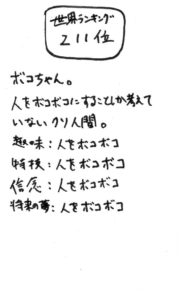 世界ランキング
211位
ボコちゃん。
人をボコボコにすることしか考えて
いないクソ人間。
趣味:人をボコボコ
特技:人をボコボコ
信念:人をボコボコ
将来の夢:人をボコボコ